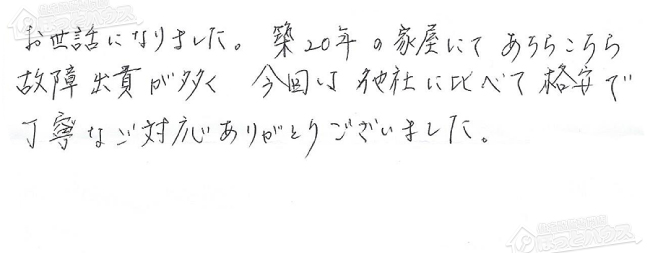 お世話になりました。築20年の家屋にてあちらこちら
故障出費が多く 今回は他社に比べて格安で
丁寧なご対応ありがとうございました。